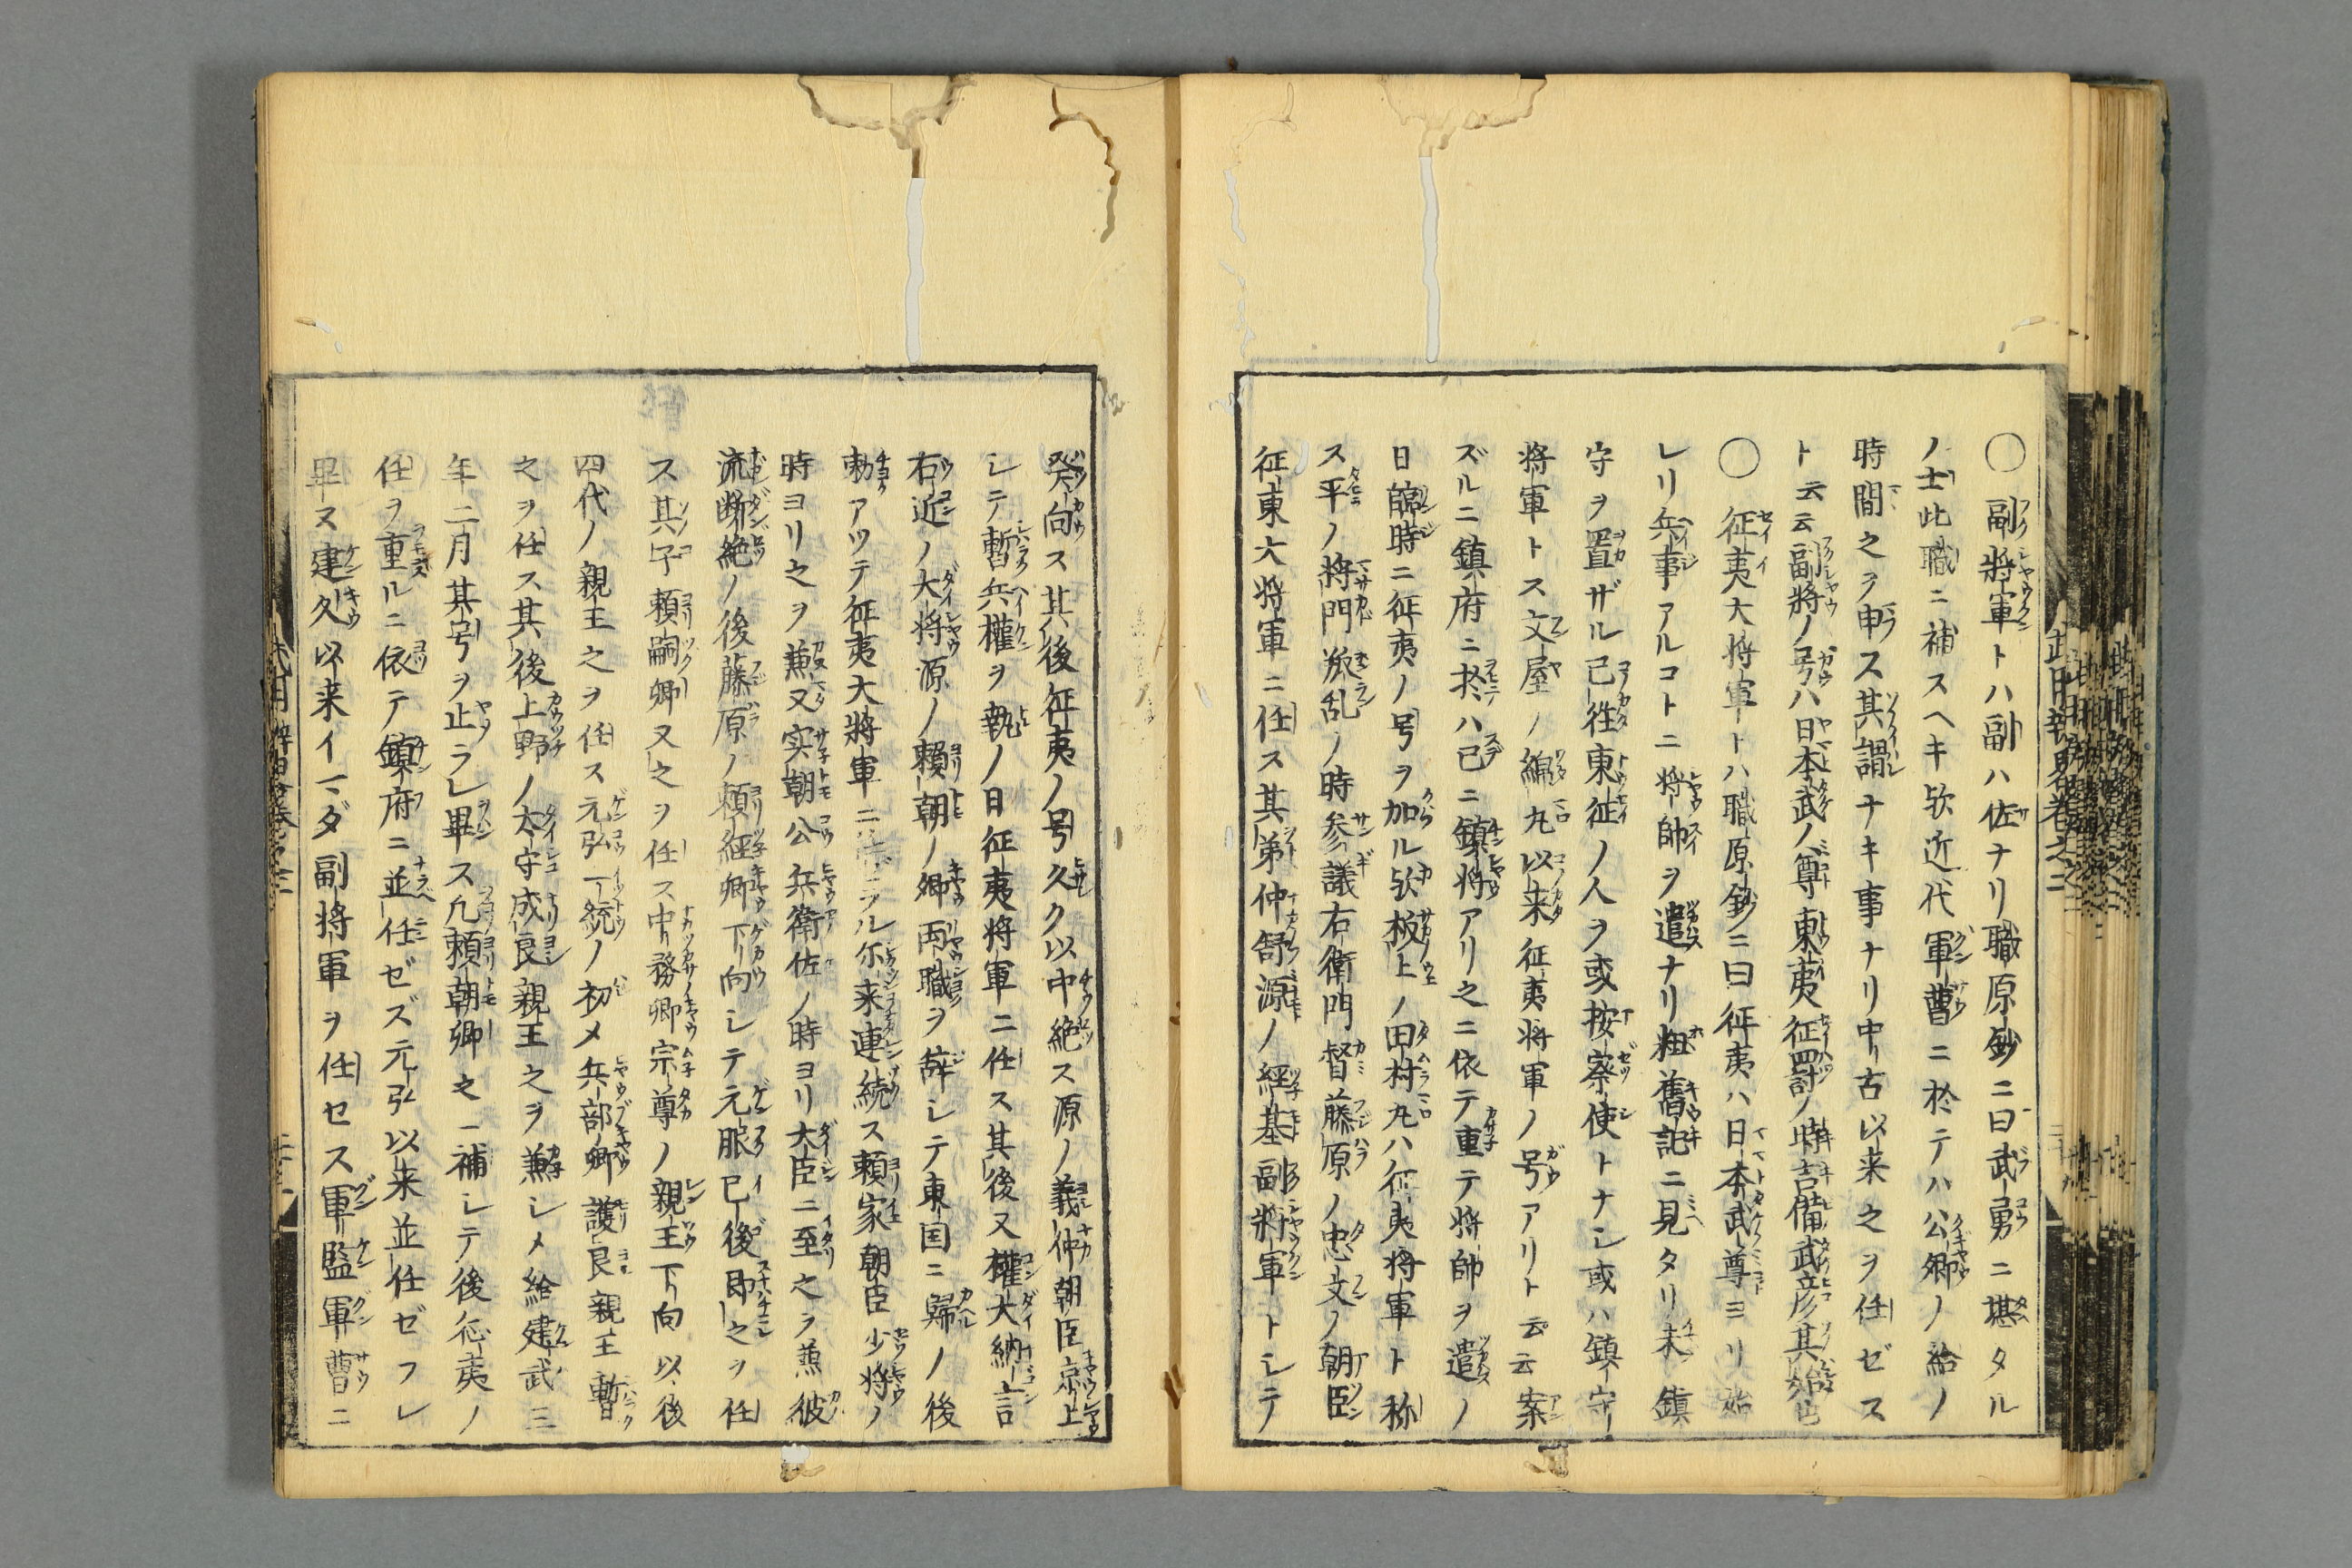 〇副将軍トハ副ハ佐ナリ職原鈔ニ曰武勇ニ堪タル
ノ士此職ニ補スヘキ欤近代軍曹ニ於テハ公卿ノ給ノ
時間之ヲ申ス其謂ナキ事ナリ中古以来之ヲ任ゼス
ト云云副将ノ号ハ日本武ノ尊東夷征罸ノ時吉備武彦其始也
〇征夷大将軍トハ職原鈔ニ曰征夷ハ日本武尊ヨリ始
レリ兵事アルコトニ将帥ヲ遣ナリ粗舊記ニ見タリ未鎮
守ヲ置ザル已徃東征ノ人ヲ或按察使トナシ或ハ鎮守
将軍トス文屋ノ綿丸以来征夷将軍ノ号アリト云云案
ズルニ鎮府ニ於ハ已ニ鎮将アリ之ニ依テ重テ将帥ヲ遣ノ
日臨時ニ征夷ノ号ヲ加ル欤坂上ノ田村丸ハ征夷将軍ト称
ス平ノ将門叛乱ノ時参議右衛門督藤原ノ忠文ノ朝臣
征東大将軍ニ任ス其弟仲舒源ノ經基副将軍トシテ
発向ス其後征夷ノ号久ク以中絶ス源ノ義仲朝臣京上
シテ暫兵權ヲ執ノ日征夷将軍ニ任ス其後又權大納言
右近ノ大将源ノ頼朝ノ卿両職ヲ辞シテ東国ニ歸ノ後
勅アツテ征夷大将軍ニ ラル尓来連続ス頼家朝臣少将ノ
時ヨリ之ヲ兼又実朝公兵衛佐ノ時ヨリ大臣ニ至之ヲ兼彼
流断絶ノ後藤原ノ頼經卿下向シテ元服已後即之ヲ任
ス其子頼嗣卿又之ヲ任ス中務卿宗尊ノ親王下向以後
四代ノ親王之ヲ任ス元弘一統ノ初メ兵部卿護良親王暫
之ヲ任ス其後上野ノ太守成良親王之ヲ兼シメ給建武三
年二月其号ヲ止ラレ畢ス凢頼朝卿之一補シテ後征夷ノ
任ヲ重ルニ依テ鎮府ニ並任ゼズ元弘以来並任ゼフレ
畢ヌ建久以来イマダ副将軍ヲ任セス軍監軍曹ニ